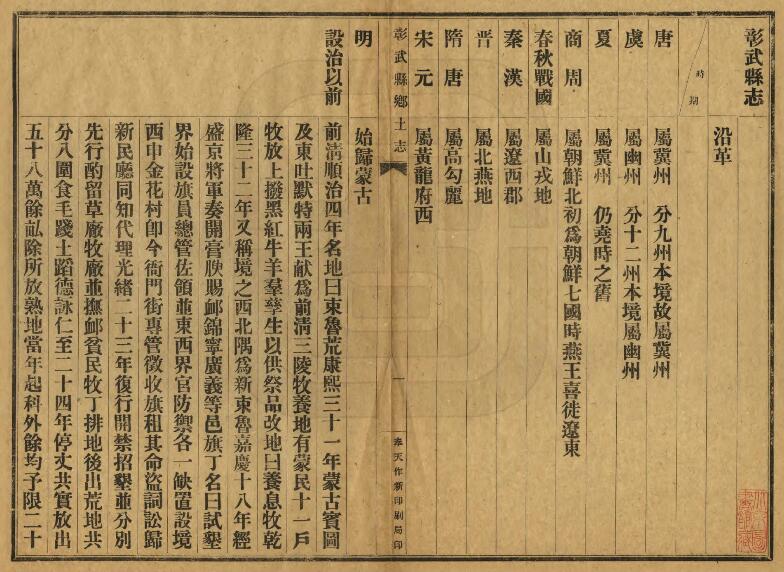 彰武縣志
時期
沿革
唐 屬冀州 分九州本境故屬冀州
虞 屬幽州 分十二州本境屬幽州
夏 屬冀州 仍堯時之舊
商周 屬朝鮮北初爲朝鮮七國時燕王喜徙遼東
春秋戰國 屬山戎地
秦漢 屬遼西郡
晋 屬北燕地
隋唐 屬高勾麗
宋元 屬黃龍府西
彰武縣鄉土志
一
奉天作新印刷局印
明 始歸蒙古
設治以前 前淸順治四年名地曰東魯荒康熙三十一年蒙古賓圖
及東吐默特兩王献爲前淸三陵牧養地有蒙民十一戶
牧放上撥黑紅牛羊羣孳生以供祭品改地曰養息牧乾
隆三十二年又稱境之西北隅爲新東魯嘉慶十八年經
盛京將軍奏開膏腴賜邮錦寧廣義等邑旗丁名曰試墾
界始設旗員總管佐領並東西界官防禦各一缺置設境
西申金花村卽今衙門街專管徵收旗租其命盜詞訟歸
新民廳同知代理光緒二十三年復行開禁招墾並分別
先行酌留草廠牧廠並撫邮貧民牧丁排地後出荒地共
分八圍食毛踐土蹈德詠仁至二十四年停丈共實放出
五十八萬餘畆除所放熟地當年起科外餘均予限二十